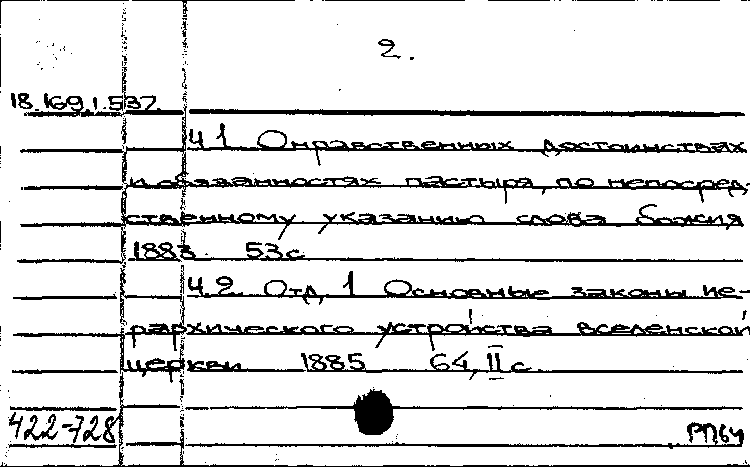 2.
18.169.1.537.
Ч.1 О нравственных достоинствах
и обязанностях пастыря, по непосред-
ственному указанию слова Божия
1883. 53с
Ч.2. Отд. 1 Основные законы ие-
рархического устройства вселенской
церкви 1885 64, II с.
422-728
РПБ4